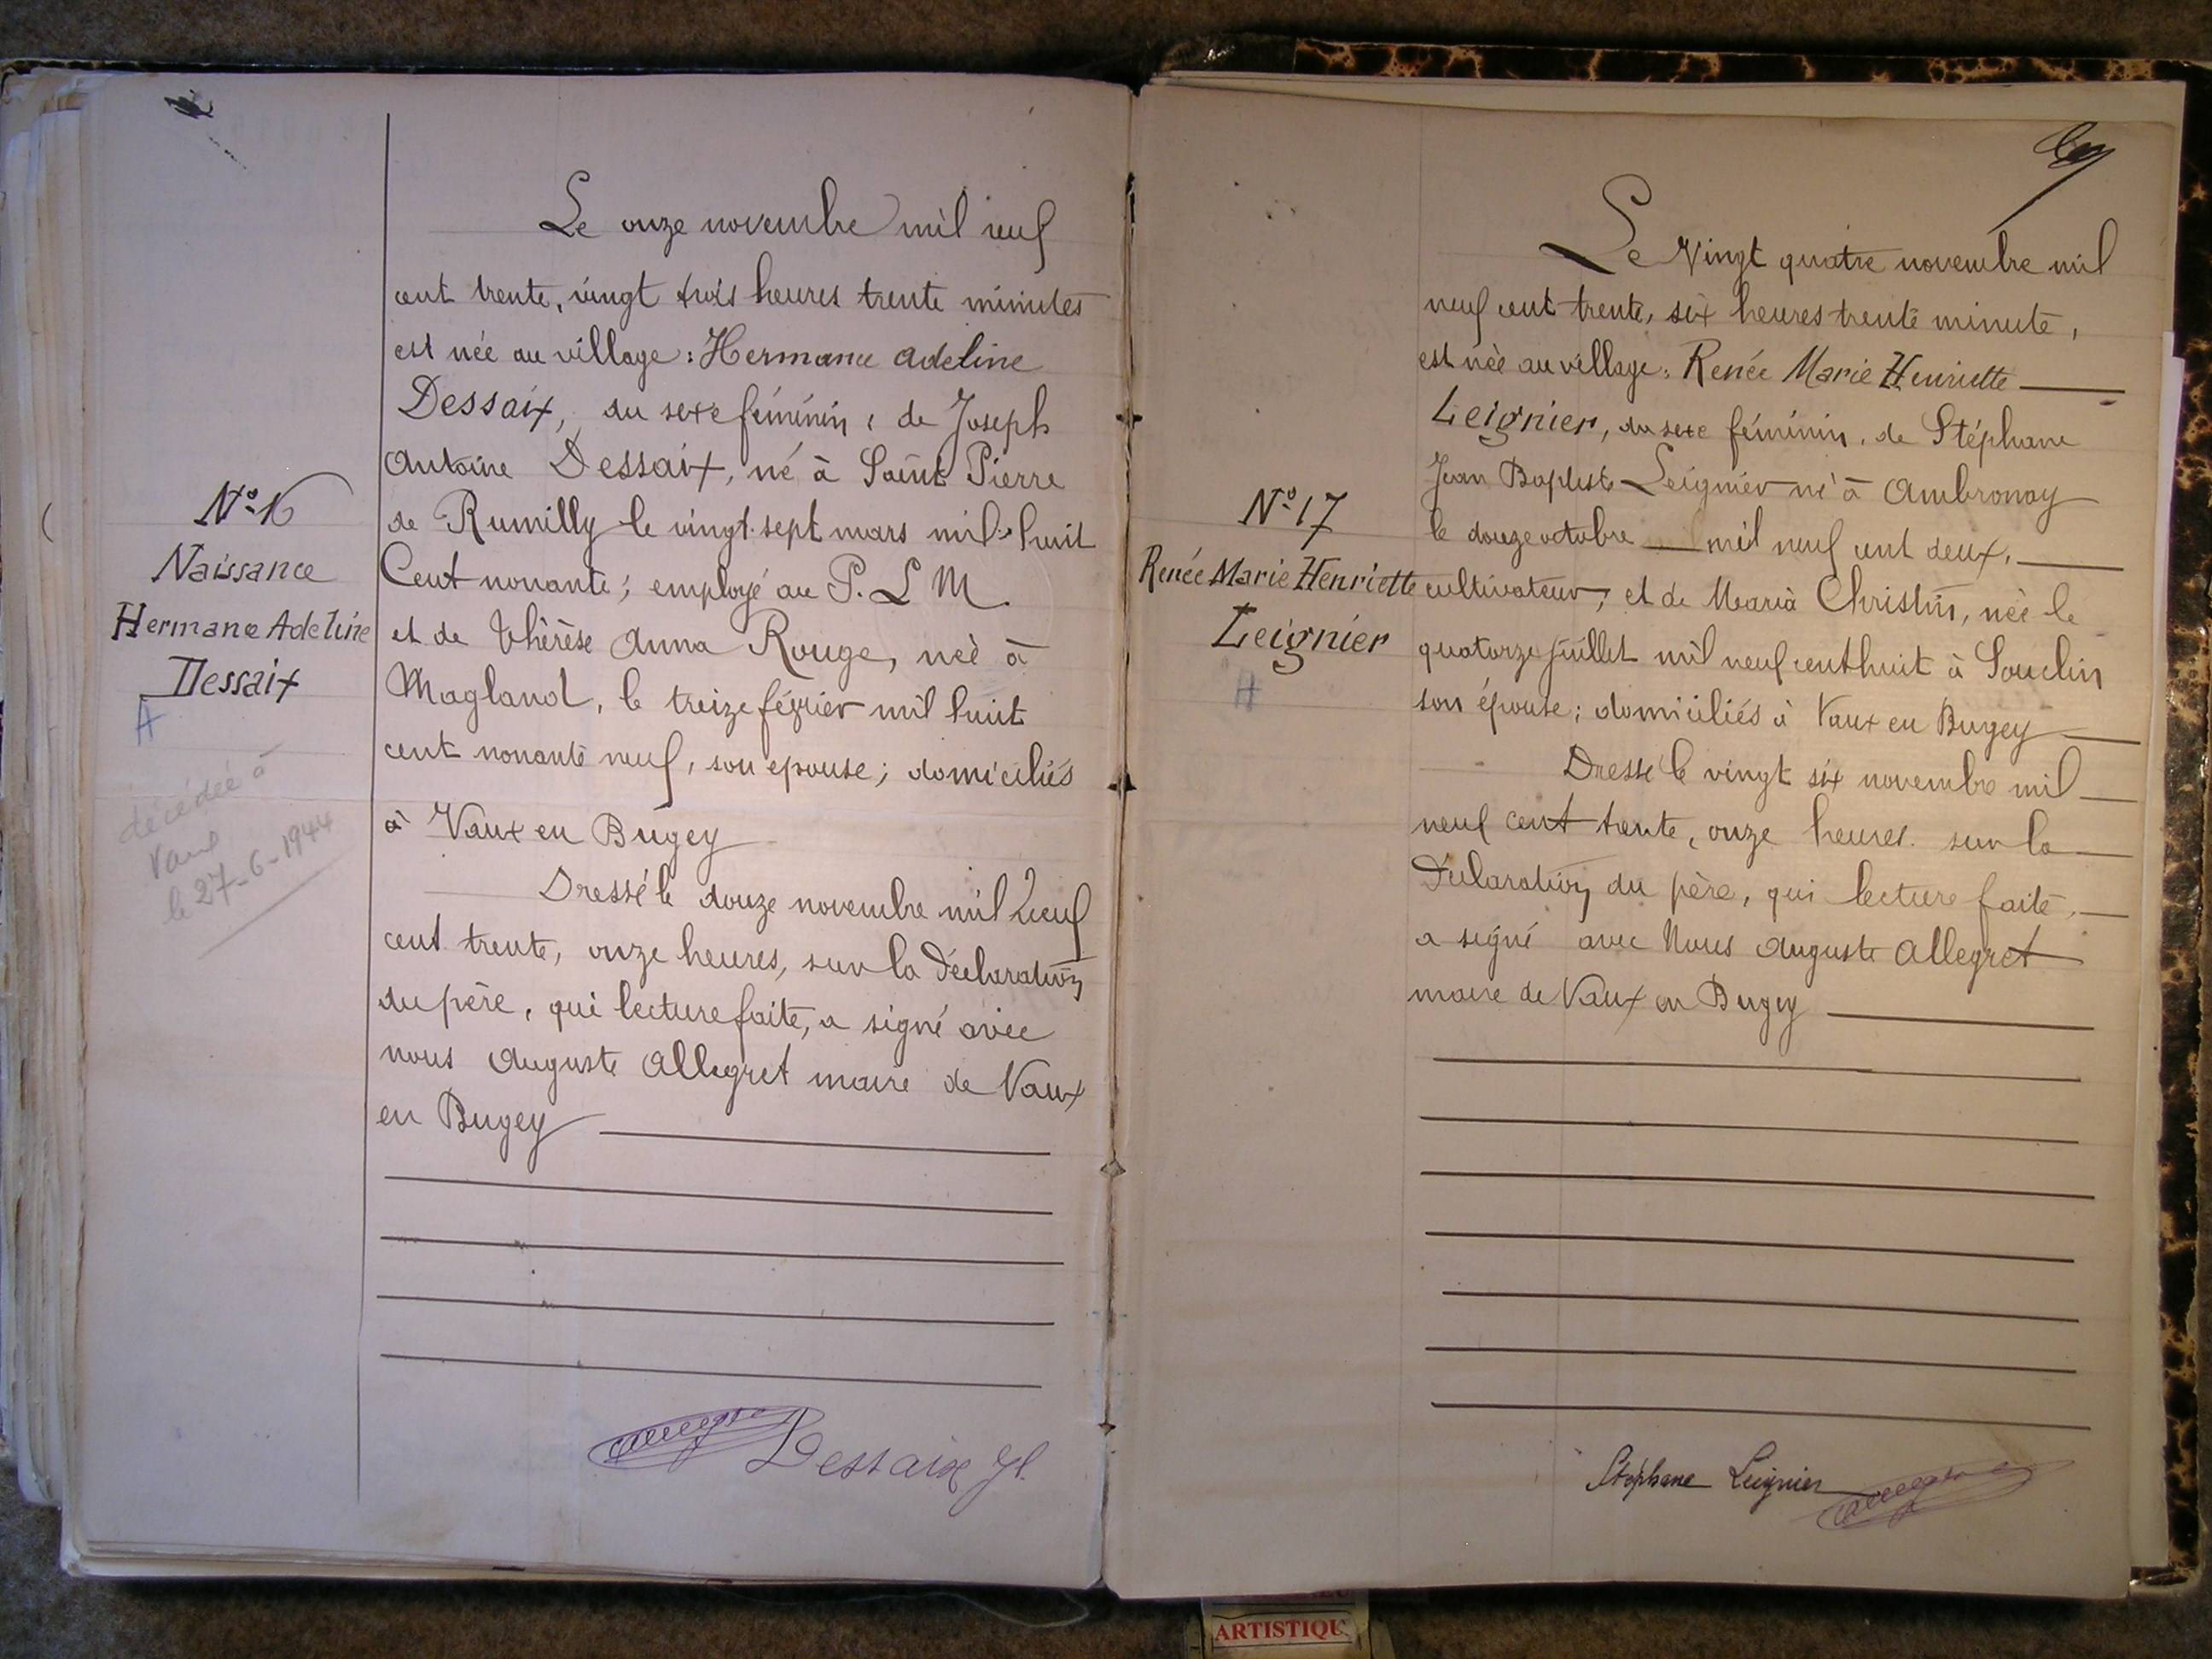 N° 16
Naissance
Hermance Adeline
Dessaix
A
décédée à
Vaux
le 27-6-1944
Le onze novembre mil neuf
cent trente, vingt trois heures trente minutes
est née au village : Hermance Adeline
Dessaix, du sexe féminin, de Joseph
Antoine Dessaix, né à Saint Pierre
de Rumilly le vingt-sept mars mil huit
Cent nonante ; employé au P. L M.
et de Thérèse Anna Rouge, née à
Magland, le treize février mil huit
cent nonante neuf, son epouse ; domiciliés
à Vaux en Bugey
Dressé le douze novembre mil neuf
cent trente, onze heures, sur la déclaration
du père, qui lecture faite, a signé avec
nous Auguste Allegret maire de Vaux
en Bugey
Dessaix Jh.
N° 17
Renée Marie Henriette
Leignier
H
Le Vingt quatre novembre mil
neuf cent trente, six heures trente minute,
est née au village : Renée Marie Henriette
Leignier, du sexe féminin, de Stéphane
Jean Baptiste Leignier né à Ambronay
le douze octobre mil neuf cent deux,
cultivateur, et de Maria Christin, née le
quatorze juillet mil neuf cent huit à Souclin
son épouse ; domiciliés à Vaux en Bugey
Dressé le vingt six novembre mil
neuf cent trente, onze heures. sur la
Déclaration du père, qui lecture faite,
a signé avec Nous Auguste Allegret
maire de Vaux en Bugey
Stéphane Leignier
ARTISTIQU